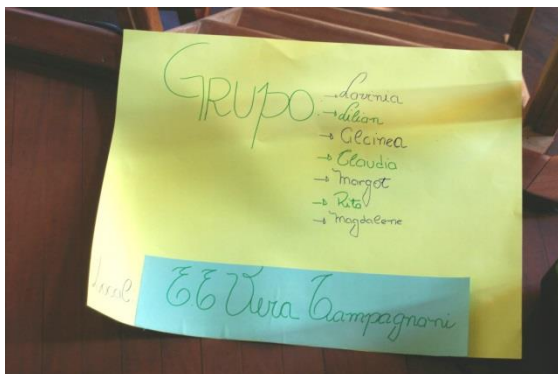 GRUPO
→ Lavinia
→ Lilian
→ Alcinea
→ Claudia
→ Margot
→ Rita
→ Magdalene
Local
EE Vera Campagnoni